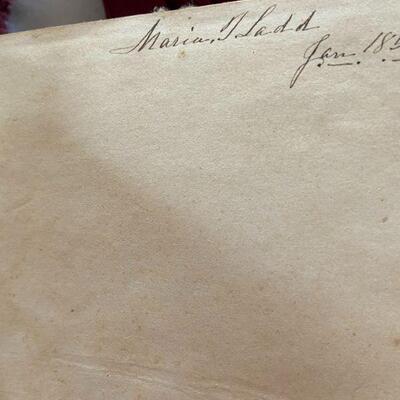 Maria, T Ladd
Jan. 18